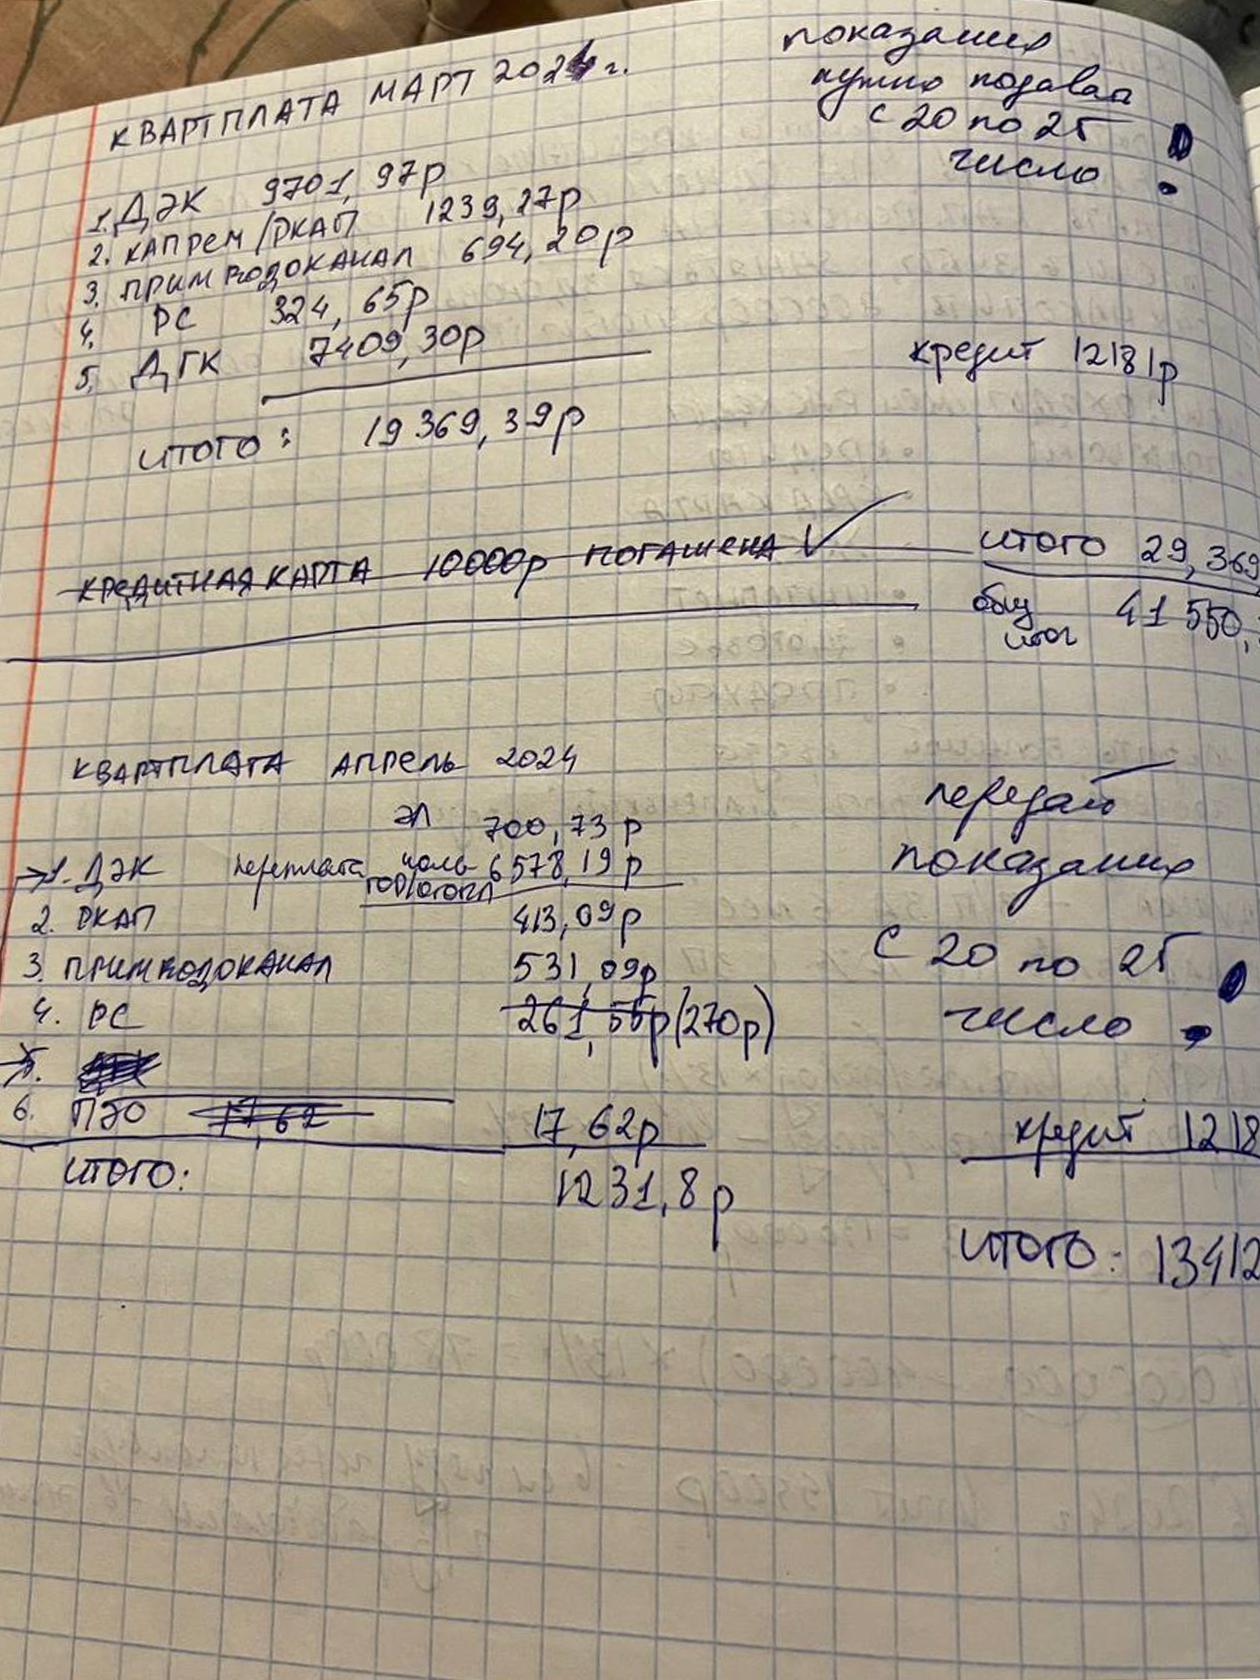 КВАРТПЛАТА МАРТ 2024 г.
показания
нужно подава
с 20 по 25
число !
1. ДЭК 9701,97р
2. КАПРЕМ/РКАП 1239,27р
3. ПРИМВОДОКАНАЛ 694,20р
4. РС 324,65р
5. ДГК 7409,30р
кредит 12181р
ИТОГО: 19369,39р
КРЕДИТНАЯ КАРТА 10000р ПОГАШЕНА ✓
ИТОГО 29,369
общ 41 550,
итог
КВАРТПЛАТА АПРЕЛЬ 2024
эл 700,73р
→1. ДЭК переплата 6578,19р
2. РКАП 413,09р
3. ПРИМВОДОКАНАЛ 531,09р
4. РС 261,55р (270р)
5.
6. ПЭО 17,62 17,62р
ИТОГО: 1231,8р
передать
показания
с 20 по 25
число !
кредит 1218
ИТОГО: 13412